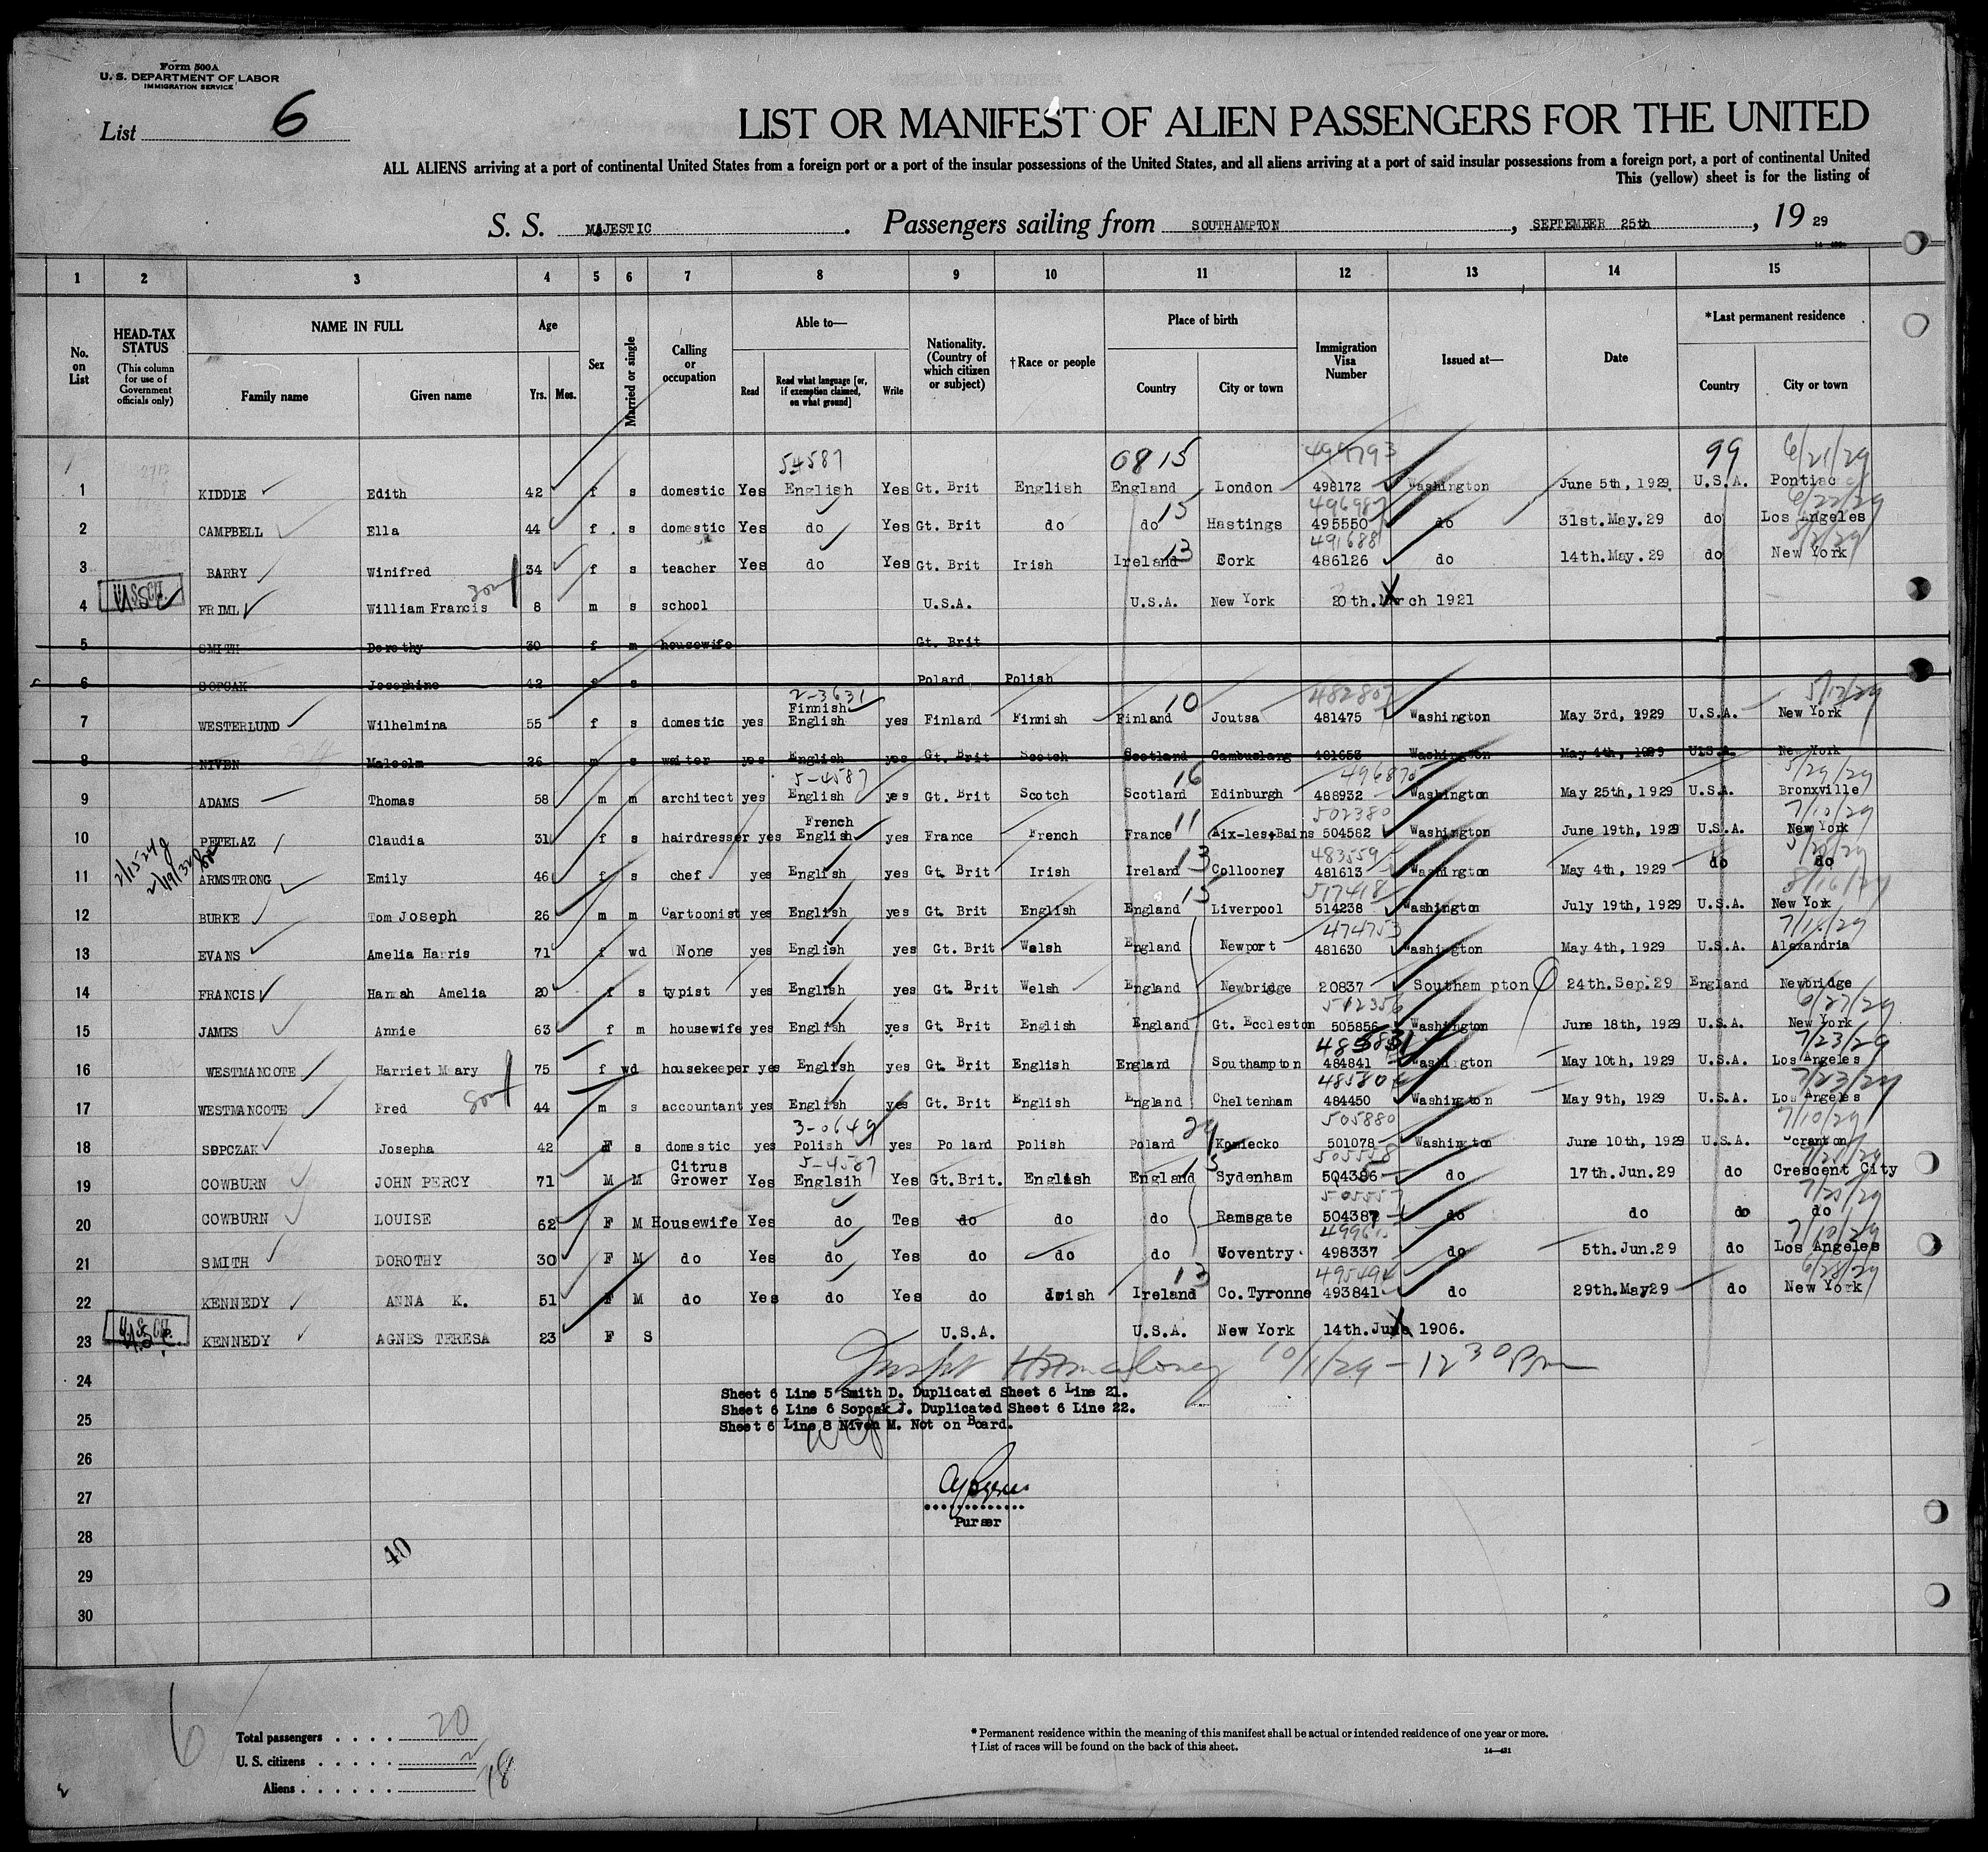 Form 500A
U. S. DEPARTMENT OF LABOR
IMMIGRATION SERVICE
List 6
LIST OR MANIFEST OF ALIEN PASSENGERS FOR THE UNITED
ALL ALIENS arriving at a port of continental United States from a foreign port or a port of the insular possessions of the United States, and all aliens arriving at a port of said insular possessions from a foreign port, a port of continental United
This (yellow) sheet is for the listing of
S. S. MAJESTIC . Passengers sailing from SOUTHAMPTON , SEPTEMBER 25th , 19 29
1 2 3 4 5 6 7 8 9 10 11 12 13 14 15
No. on List
HEAD-TAX STATUS
(This column for use of Government officials only)
NAME IN FULL
Family name Given name
Age
Yrs. Mos.
Sex
Married or single
Calling or occupation
Able to—
Read
Read what language [or, if exemption claimed, on what ground]
Write
Nationality. (Country of which citizen or subject)
†Race or people
Place of birth
Country City or town
Immigration Visa Number
Issued at—
Date
*Last permanent residence
Country City or town
54587 0815 499793 99 6/21/29
1 KIDDIE Edith 42 f s domestic Yes English Yes Gt. Brit English England London 498172 Washington June 5th, 1929. U.S.A. Pontiac
15 6/22/29
2 CAMPBELL Ella 44 f s domestic Yes do Yes Gt. Brit do do Hastings 495550 do 31st. May. 29 do Los Angeles
13 491688
3 BARRY Winifred 34 f s teacher Yes do Yes Gt. Brit Irish Ireland Cork 486126 do 14th. May. 29 do New York
4 FRIML William Francis 8 m s school U.S.A. U.S.A. New York 20th. March 1921
5 SMITH Dorothy 30 f m housewife Gt. Brit
6 SOPCAK Josephine 42 f s Poland Polish
2-3631 10 482807 5/12/29
7 WESTERLUND Wilhelmina 55 f s domestic yes Finnish English yes Finland Finnish Finland Joutsa 481475 Washington May 3rd, 1929 U.S.A. New York
8 NIVEN Malcolm 26 m s waiter yes English yes Gt. Brit Scotch Scotland Cambuslang 481653 Washington May 4th, 1929 U.S.A. New York
5-4587 16 5/29/29
9 ADAMS Thomas 58 m m architect yes English yes Gt. Brit Scotch Scotland Edinburgh 488932 Washington May 25th, 1929 U.S.A. Bronxville
11 502380 7/10/29
10 PETELAZ Claudia 31 f s hairdresser yes French English yes France French France Aix-les-Bains 504582 Washington June 19th, 1929 U.S.A. New York
13 483559
11 ARMSTRONG Emily 46 f s chef yes English yes Gt. Brit Irish Ireland Collooney 481613 Washington May 4th, 1929 do do
15 517418 8/16/29
12 BURKE Tom Joseph 26 m m Cartoonist yes English yes Gt. Brit English England Liverpool 514238 Washington July 19th, 1929 U.S.A. New York
474753
13 EVANS Amelia Harris 71 f wd None yes English yes Gt. Brit Welsh England Newport 481630 Washington May 4th, 1929 U.S.A. Alexandria
14 FRANCIS Hannah Amelia 20 f s typist yes English yes Gt. Brit Welsh England Newbridge 20837 Southampton 24th. Sep. 29 England Newbridge
512356 6/27/29
15 JAMES Annie 63 f m housewife yes English yes Gt. Brit English England Gt. Eccleston 505856 Washington June 18th, 1929 U.S.A. New York
7/23/29
16 WESTMANCOTE Harriet Mary 75 f wd housekeeper yes English yes Gt. Brit English England Southampton 484841 Washington May 10th, 1929 U.S.A. Los Angeles
7/23/29
17 WESTMANCOTE Fred 44 m s accountant yes English yes Gt. Brit English England Cheltenham 484450 Washington May 9th, 1929 U.S.A. Los Angeles
3-0649 505880 7/10/29
18 SOPCZAK Josepha 42 F s domestic yes Polish yes Poland Polish Poland Komiecko 501078 Washington June 10th, 1929 U.S.A. Scranton
5-4587
19 COWBURN JOHN PERCY 71 M M Citrus Grower Yes Englsih Yes Gt. Brit. English England Sydenham 504386 do 17th. Jun. 29 do Crescent City
505557
20 COWBURN LOUISE 62 F M Housewife Yes do Tes do do do Ramsgate 504387 do do do do
7/10/29
21 SMITH DOROTHY 30 F M do Yes do Yes do do do Coventry 498337 do 5th. Jun. 29 do Los Angeles
13 6/28/29
22 KENNEDY ANNA K. 51 F M do Yes do Yes do Irish Ireland Co. Tyronne 493841 do 29th. May 29 do New York
23 KENNEDY AGNES TERESA 23 F S U.S.A. U.S.A. New York 14th. June 1906.
24 10/1/29 - 12 30 Pm
Sheet 6 Line 5 Smith D. Duplicated Sheet 6 Line 21.
Sheet 6 Line 6 Sopcak J. Duplicated Sheet 6 Line 22.
25 Sheet 6 Line 8 Niven M. Not on Board.
26
27
Purser
28
40
29
30
6
Total passengers 20
U. S. citizens 2
Aliens 18
* Permanent residence within the meaning of this manifest shall be actual or intended residence of one year or more.
† List of races will be found on the back of this sheet.